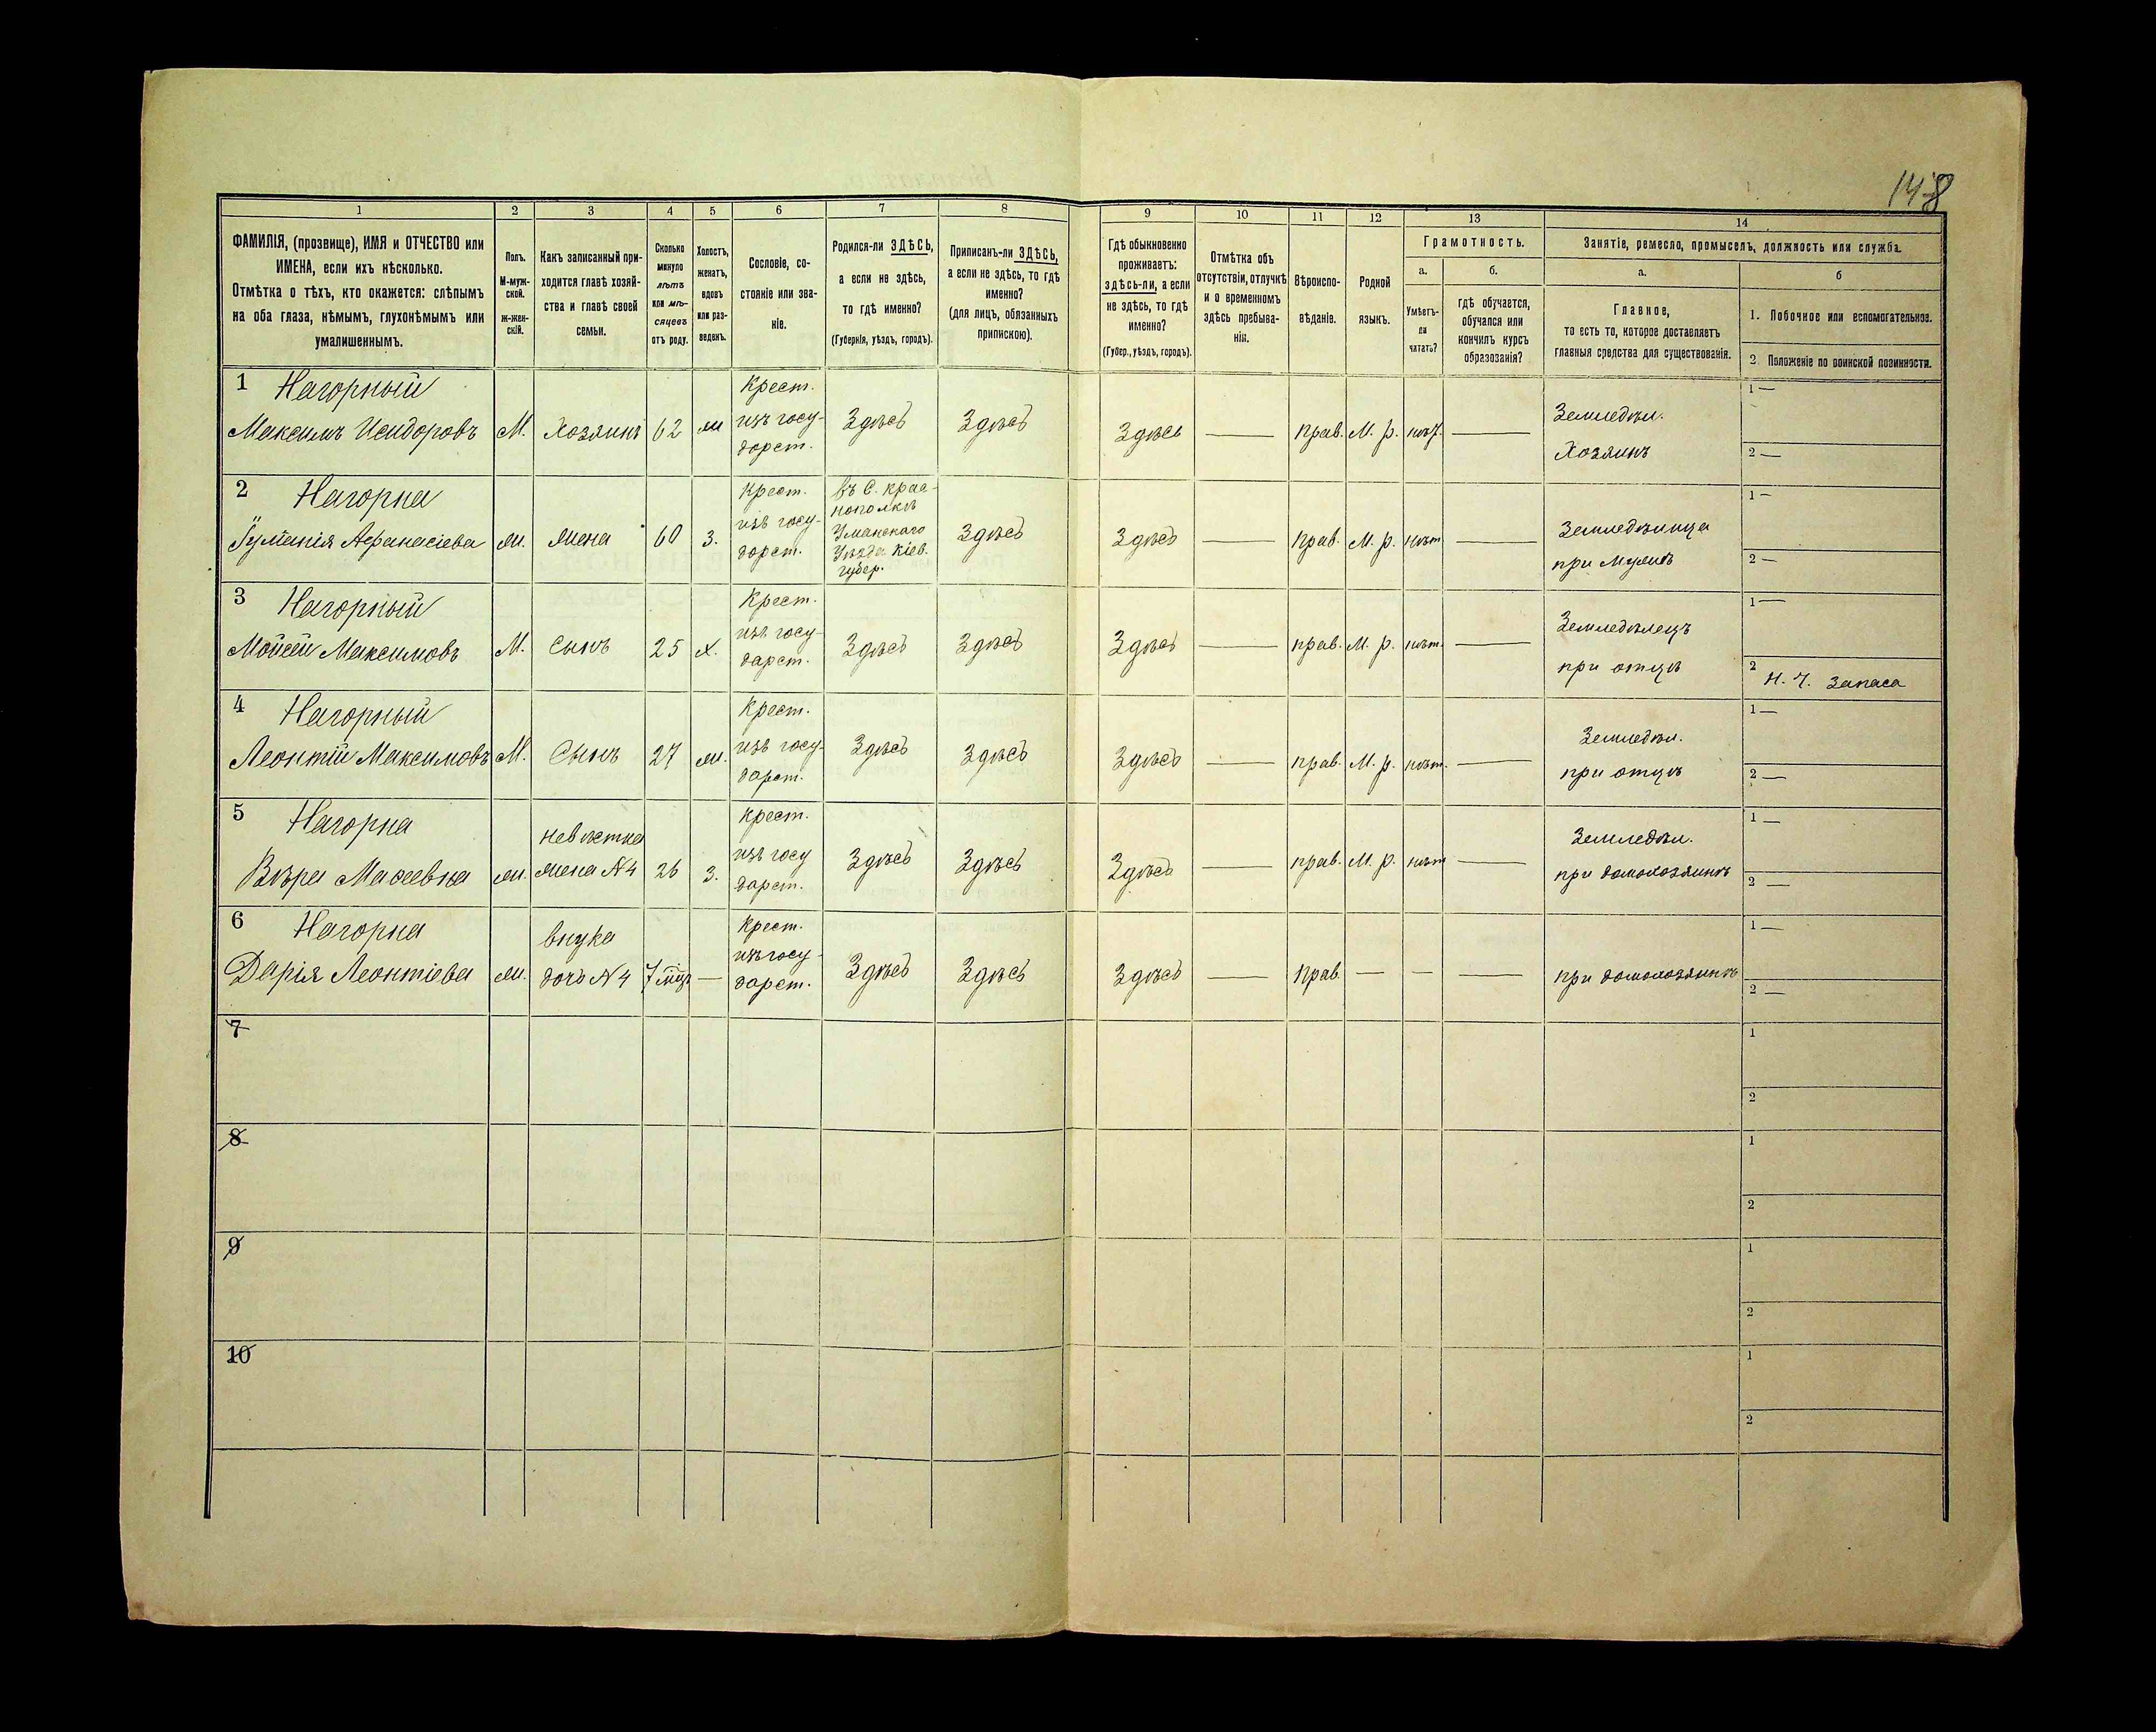 148
1 2 3 4 5 6 7 8 9 10 11 12 13 14
ФАМИЛІЯ, (прозвище), ИМЯ и ОТЧЕСТВО или
ИМЕНА, если ихъ нѣсколько.
Отмѣтка о тѣхъ, кто окажется: слѣпымъ
на оба глаза, нѣмымъ, глухонѣмымъ или
умалишеннымъ.
Полъ.
М-муж-
ской.
Ж-жен-
скій.
Какъ записанный при-
ходится главѣ хозяй-
ства и главѣ своей
семьи.
Сколько
минуло
лѣтъ
или мѣ-
сяцевъ
отъ роду.
Холостъ,
женатъ,
вдовъ
или раз-
веденъ.
Сословіе, со-
стояніе или зва-
ніе.
Родился-ли ЗДѢСЬ,
а если не здѣсь,
то гдѣ именно?
(Губернія, уѣздъ, городъ).
Приписанъ-ли ЗДѢСЬ,
а если не здѣсь, то гдѣ
именно?
(для лицъ, обязанныхъ
припискою).
Гдѣ обыкновенно
проживаетъ:
здѣсь-ли, а если
не здѣсь, то гдѣ
именно?
(Губер., уѣздъ, городъ).
Отмѣтка объ
отсутствіи, отлучкѣ
и о временномъ
здѣсь пребыва-
ніи.
Вѣроиспо-
вѣданіе.
Родной
языкъ.
Грамотность.
а.
Умѣетъ-
ли
читать?
б.
гдѣ обучается,
обучался или
кончилъ курсъ
образованія?
Занятіе, ремесло, промыселъ, должность или служба.
а.
Главное,
то есть то, которое доставляетъ
главныя средства для существованія.
б
1. Побочное или вспомогательное.
2. Положеніе по воинской повинности.
1 Нагорный
Максимъ Исидоровъ
М.
Хозяинъ
62
ж
Крест.
изъ госу-
дарст.
Здѣсь
Здѣсь
Здѣсь
—
прав.
М. р.
нѣт
—
Земледѣл.
Хозяинъ
1 —
2 —
2 Нагорна
Афанасіева
ж.
жена
60
З.
Крест.
изъ госу-
дарст.
въ С. крас-
нополкѣ
Уманскаго
Уѣзда Кіев.
губер.
Здѣсь
Здѣсь
—
прав.
М. р.
нѣт
—
Земледѣлица
при мужѣ
1 —
2 —
3 Нагорный
Мойсей Максимовъ
М.
Сынъ
25
х.
Крест.
изъ госу-
дарст.
Здѣсь
Здѣсь
Здѣсь
—
прав.
М. р.
нѣт.
—
Земледѣлецъ
при отцѣ
1 —
2 Н. Ч. Запаса
4 Нагорный
Леонтій Максимовъ
М.
Сынъ
27
ж.
Крест.
изъ госу-
дарст.
Здѣсь
Здѣсь
Здѣсь
—
прав.
М. р.
нѣт.
—
Земледѣл.
при отцѣ
1 —
2 —
5 Нагорна
Вѣра Масеевна
ж.
невѣстка
жена N 4
26
З.
Крест.
изъ госу
дарст.
Здѣсь
Здѣсь
Здѣсь
—
прав.
М. р.
нѣт
—
Земледѣл.
при домохозяинѣ
1 —
2 —
6 Нагорна
Дарія Леонтіева
ж.
внука
дочь N 4
7 мѣц
—
Крест.
изъ госу-
дарст.
Здѣсь
Здѣсь
Здѣсь
—
Прав.
—
—
—
при домохозяинѣ
1 —
2 —
7
1
2
8
1
2
9
1
2
10
1
2